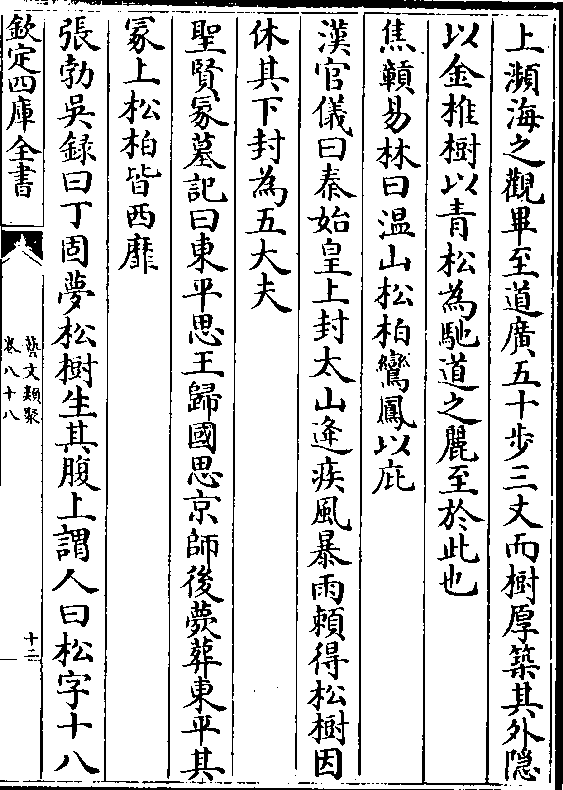 上瀕海之觀畢至道廣五十步三丈而樹厚築其外隱
以金椎樹以青松為馳道之麗至於此也
焦贛易林曰温山松柏鸞鳳以庇
漢官儀曰秦始皇上封太山逢疾風暴雨賴得松樹因
休其下封為五大夫
聖賢冢墓記曰東平思王歸國思京師後薨葬東平其
冢上松柏皆西靡
張勃吳錄曰丁固夢松樹生其腹上謂人曰松字十八
欽定四庫全書
藝文類聚
卷八十八
十二